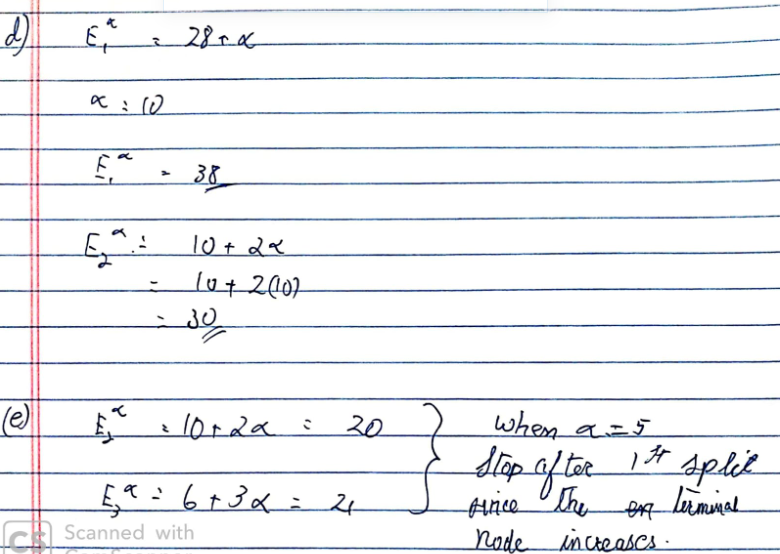 d) E₁^α = 28 + α
α = 10
E₁^α = 38
E₂^α = 10 + 2α
= 10 + 2(10)
= 30
(e) E₂^α = 10 + 2α = 20 } when α = 5
Stop after 1st split
E₃^α = 6 + 3α = 21 since the terminal
node increases.
CS Scanned with